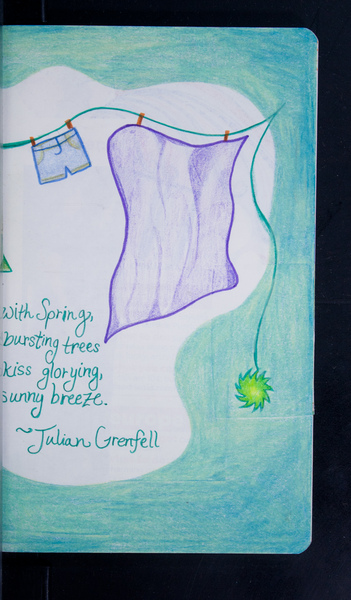 with Spring,
bursting trees
kiss glorying,
sunny breeze.
~Julian Grenfell